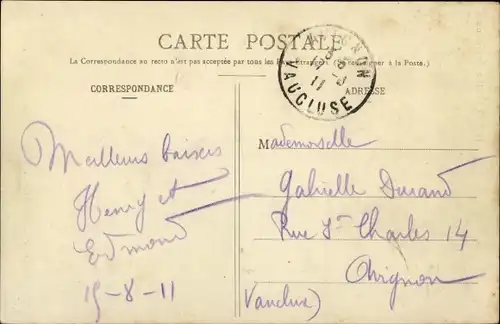 CARTE POSTALE
La Correspondance au recto n'est pas acceptée par tous les Pays Étrangers. (Se renseigner à la Poste.)
CORRESPONDANCE
ADRESSE
AVIGNON
VAUCLUSE
Meilleurs baisers
Henry et
Edmond
15-8-11
Mademoiselle
Gabrielle Durand
Rue St Charles 14
Avignon
Vaucluse)